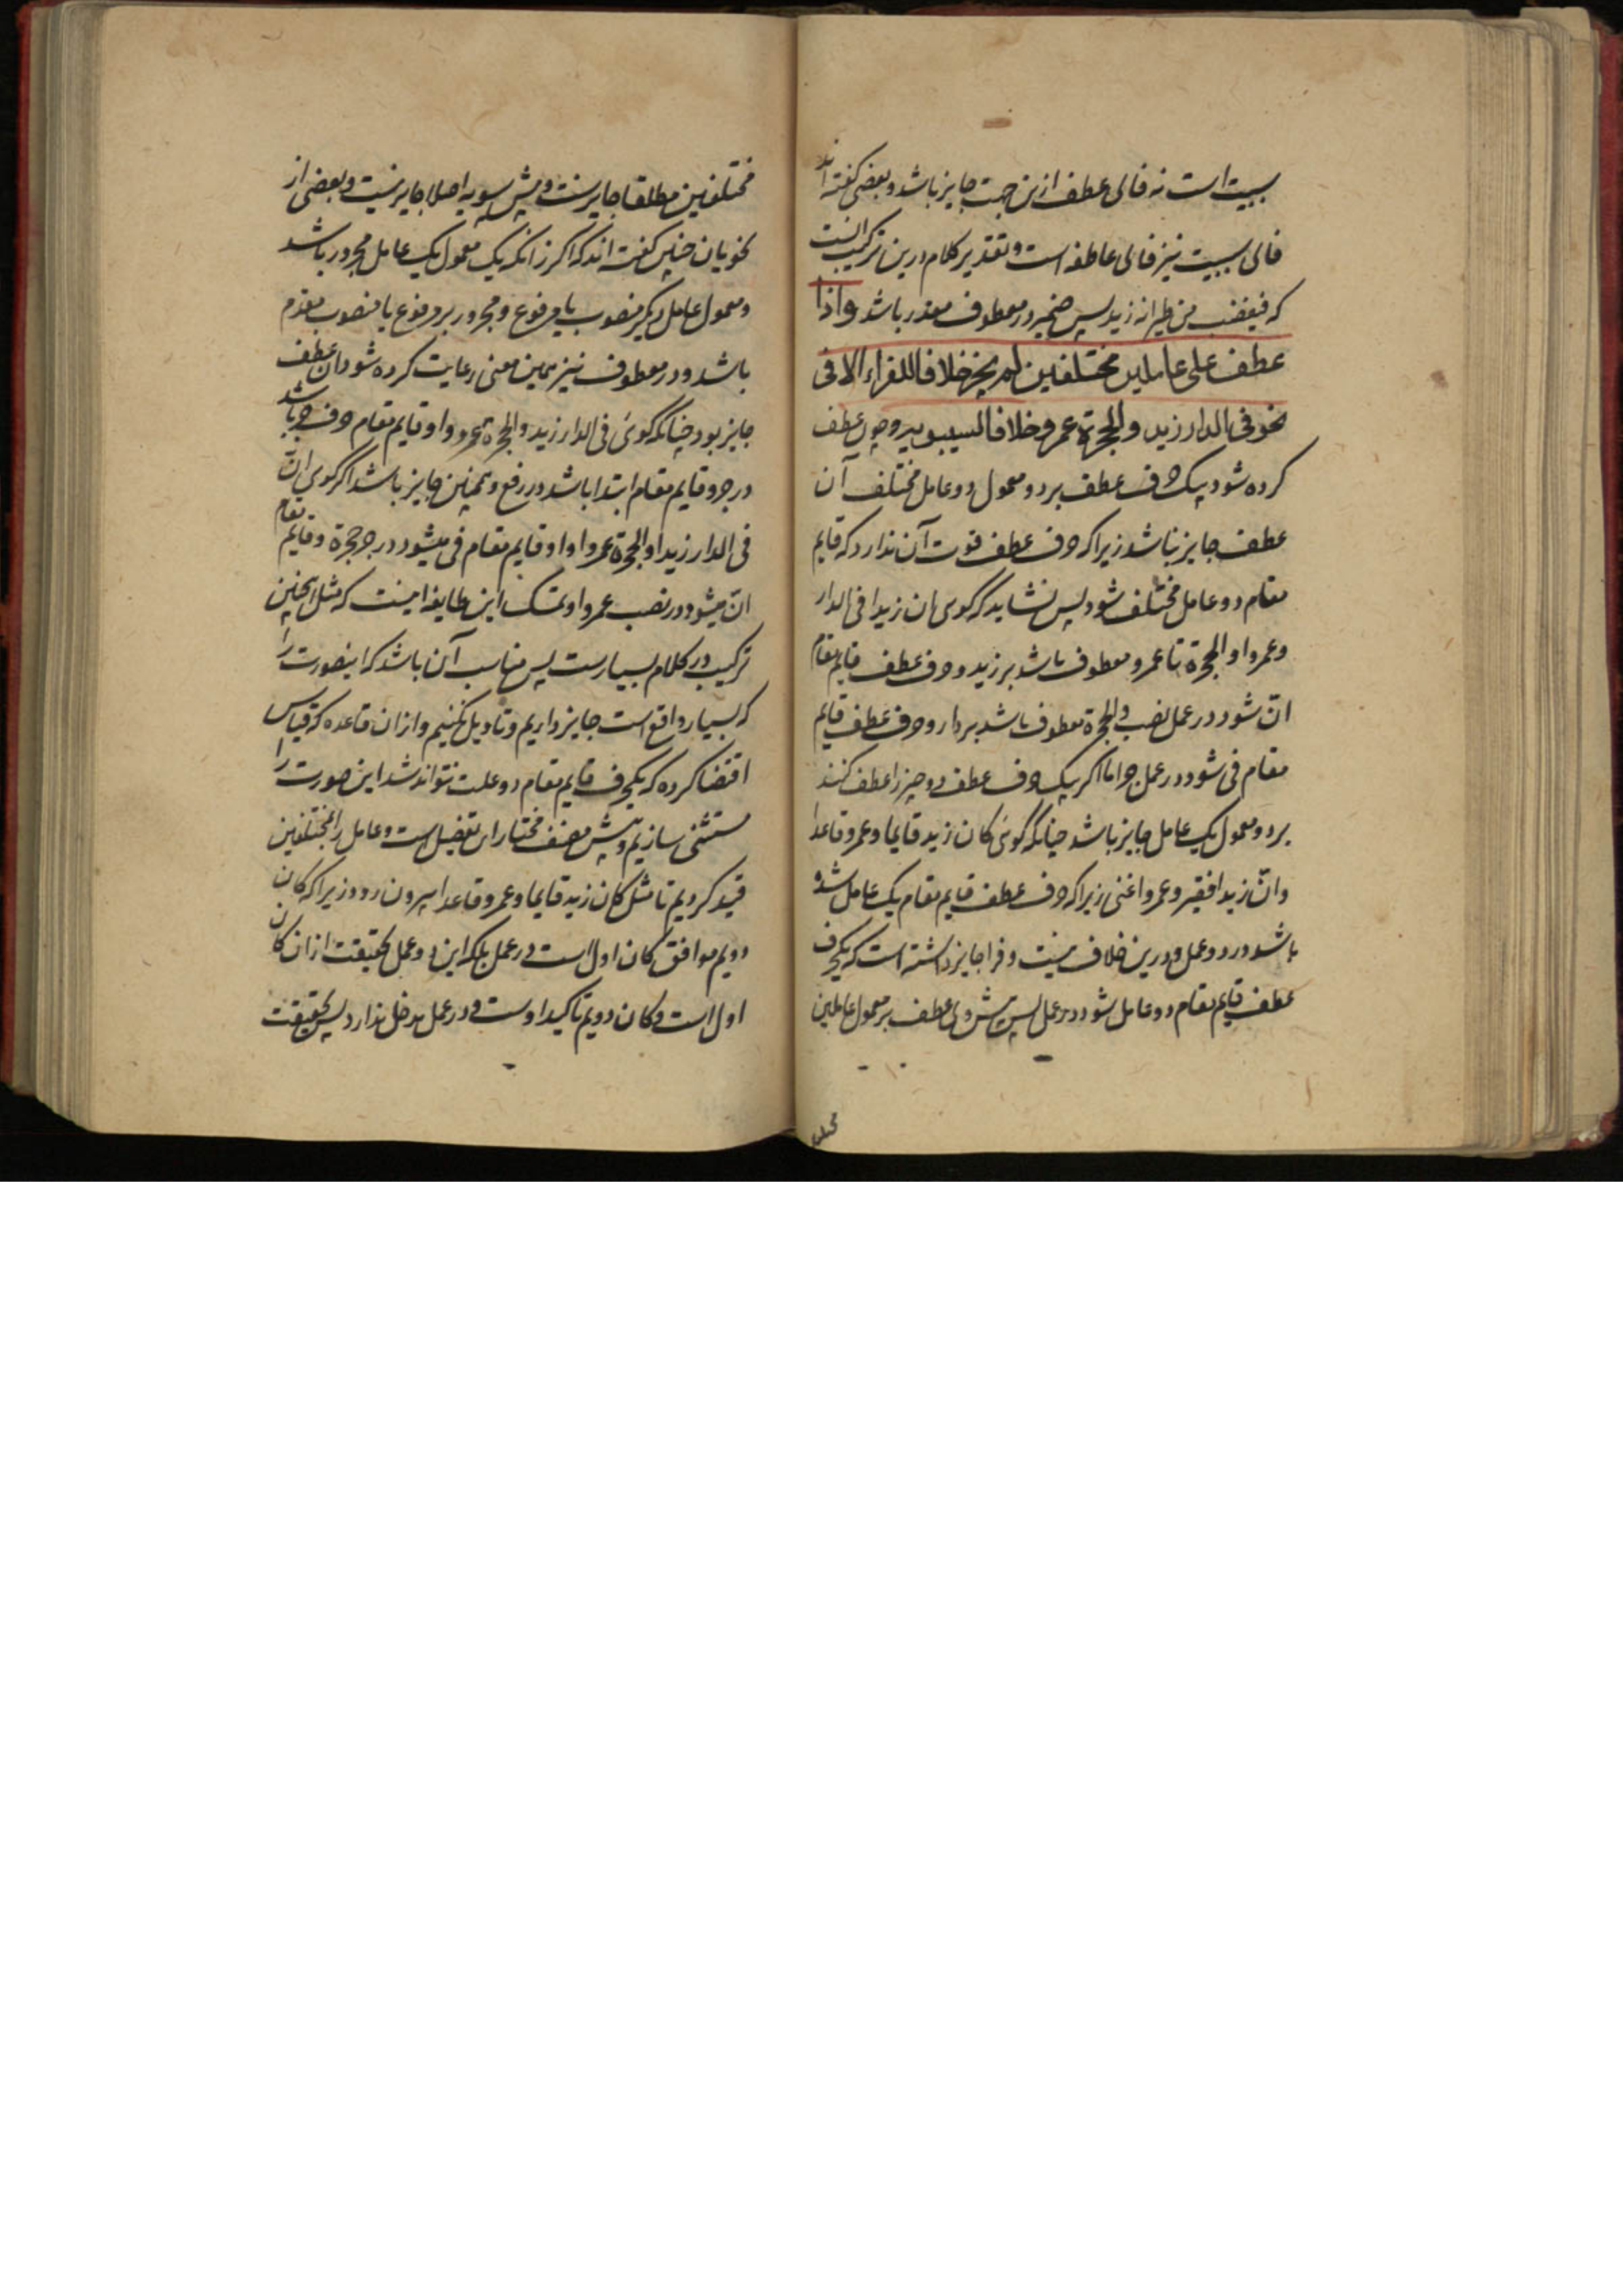 سببیت است نه فای عطف ازین جهت جایز باشد و بعضی گفته اند
فای سببیت نیز فای عاطفه است و تقدیر کلام درین ترکیب آنست
که فیغضب من طیرانه زید پس ضمیر در معطوف مقدر باشد واذا
عطف علی عاملین مختلفین لم یجز خلافا للفراء الا فی
نحو فی الدار زید والحجرة عمرو خلافا لسیبویه و چون عطف
کرده شود بیک حرف عطف بر دو معمول دو عامل مختلف آن
عطف جایز نباشد زیرا که حرف عطف قوت آن ندارد که قایم
مقام دو عامل مختلف شود پس نشاید که کوی ان زیدا فی الدار
وعمروا والحجرة تا عمرو معطوف باشد بر زید و حرف عطف قایم مقام
انّ شود در عمل نصب والحجرة معطوف باشد بر دار و حرف عطف قایم
مقام فی شود در عمل جر اما اکر بیک حرف عطف دو چیز را عطف کنند
بر دو معمول یک عامل جایز باشد چنانکه کوئی کان زید قایما وعمرو قاعدا
وانّ زیدا فقیر وعمروا غنی زیرا که حرف عطف قایم مقام یک عامل شده
باشد در دو عمل و درین خلاف نیست و فرا جایز داشته است که یکحرف
عطف قایم مقام دو عامل شود در عمل پس پیش وی عطف بر معمول عاملین
مختلفین مطلقا جایزست و پیش سیبویه اصلا جایز نیست و بعضی از
نحویان چنین گفته اند که اگر زانکه یک معمول یک عامل مجرور باشد
و معمول عامل دیگر منصوب یا مرفوع و مجرور بر مرفوع یا منصوب مقدم
باشد و در معطوف نیز همین معنی رعایت کرده شود ان عطف
جایز بود چنانکه کوئی فی الدار زید والحجرة عمرو واو قایم مقام حرف جر باشد
در جر و قایم مقام ابتدا باشد در رفع و همچنین جایز باشد اکر کوی انّ
فی الدار زیدا والحجرة عمروا واو قایم مقام فی میشود در جر حجرة و قایم مقام
انّ میشود در نصب عمروا و تمسک این طایفه اینست که مثل اینچنین
ترکیب در کلام بسیارست پس مناسب آن باشد که اینصورت را
که بسیار واقع است جایز داریم و تاویل نکنیم و ازان قاعده که قیاس
اقتضا کرده که یکحرف قایم مقام دو علت نتواند شد این صورت را
مستثنی سازیم و پیش مصنف مختار این تفصیل است و عامل را بمختلفین
قید کردیم تا مثل کان زید قایما وعمرو قاعدا بیرون رود زیرا که کان
دویم موافق کان اول است در عمل بلکه این دو عمل بحقیقت ازان کان
اول است و کان دویم تاکید اوست و در عمل مدخل ندارد پس بحقیقت